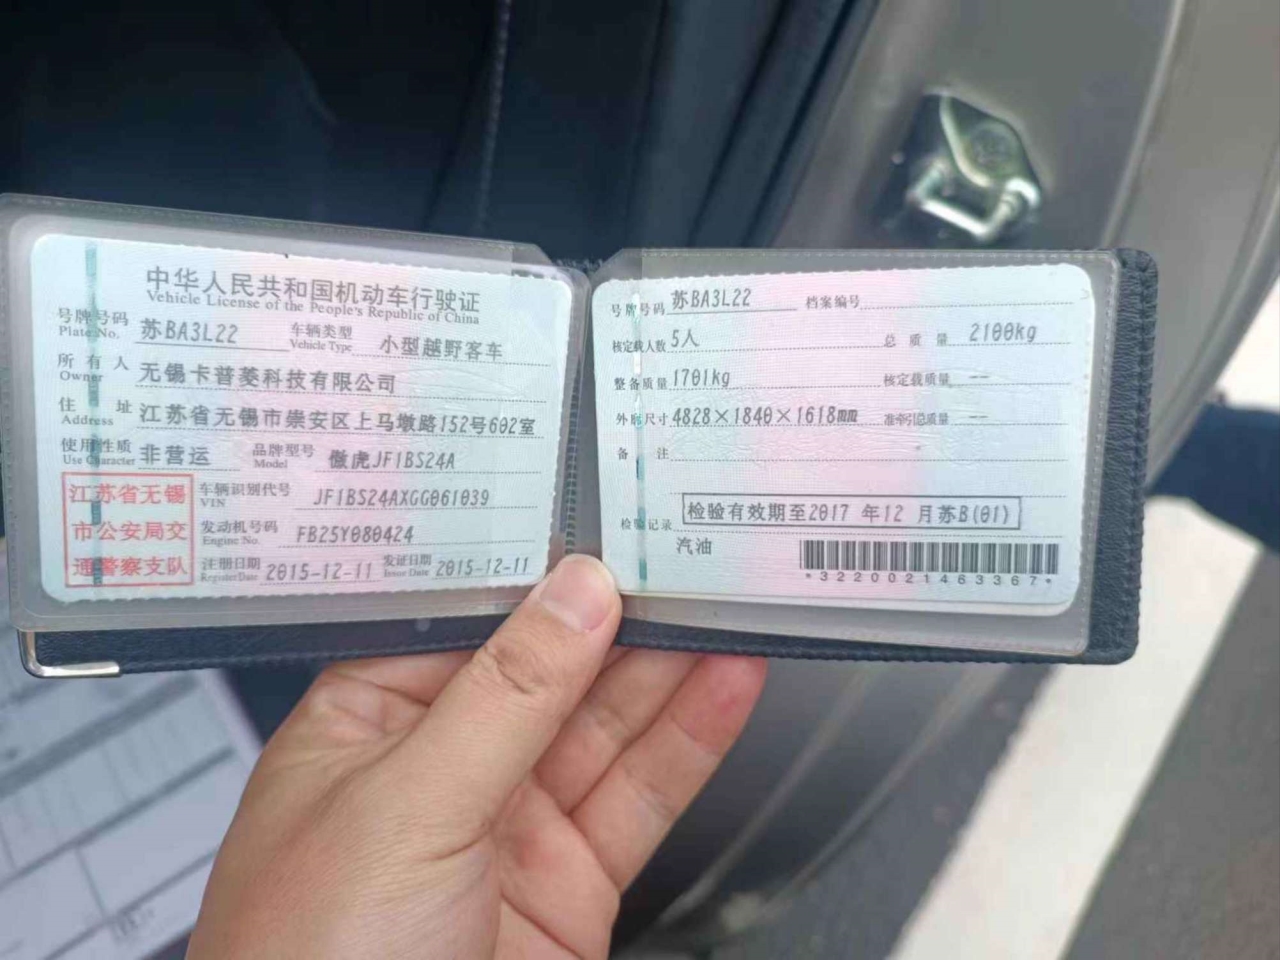 中华人民共和国机动车行驶证
Vehicle License of the People's Republic of China
号牌号码 苏BA3L22 车辆类型 小型越野客车
Plate No. Vehicle Type
所有人 无锡卡普菱科技有限公司
Owner
住址 江苏省无锡市崇安区上马墩路152号602室
Address
使用性质 非营运 品牌型号 傲虎JF1BS24A
Use Character Model
江苏省无锡
市公安局交
通警察支队
车辆识别代号 JF1BS24AXGG061039
VIN
发动机号码 FB25Y080424
Engine No.
注册日期 2015-12-11 发证日期 2015-12-11
Register Date Issue Date
号牌号码 苏BA3L22 档案编号
核定载人数 5人 总质量 2100kg
整备质量 1701kg 核定载质量 --
外廓尺寸 4828×1840×1618mm 准牵引总质量 --
备注
检验记录 检验有效期至2017年12月苏B(01)
汽油
*3220021463367*